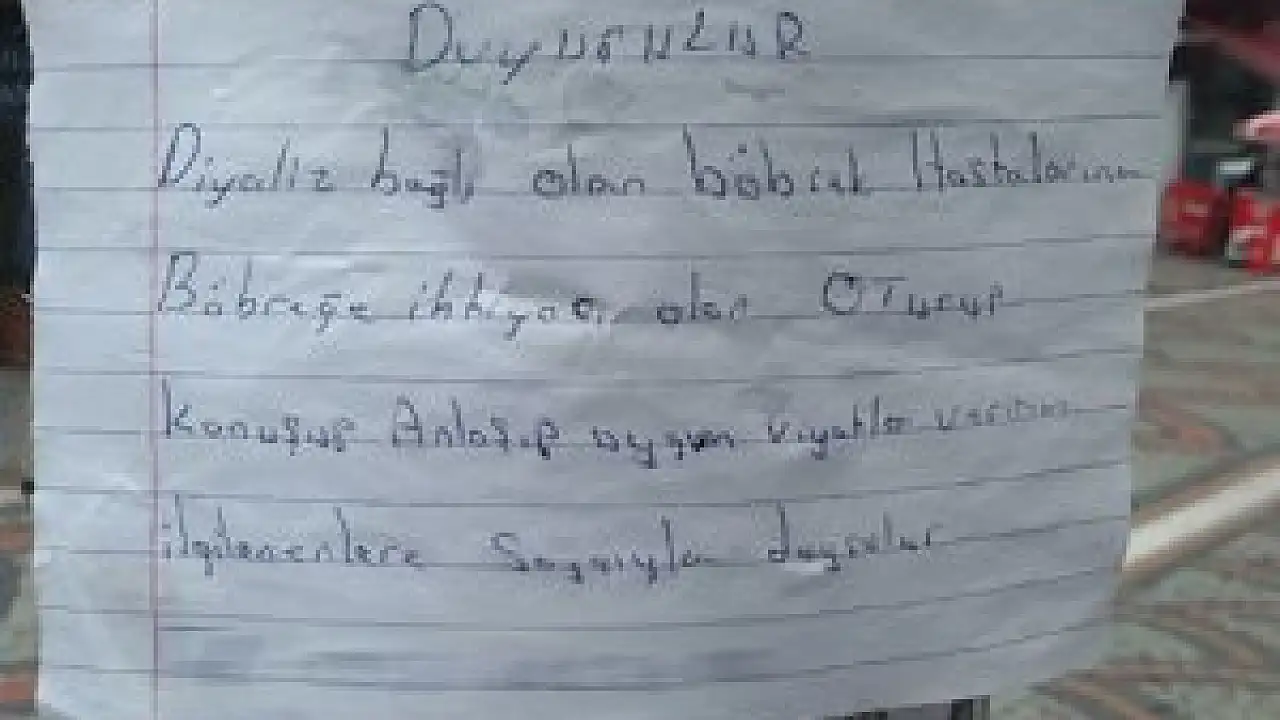 DuyuruLAR
Diyaliz bağlı olan böbrek Hastalarına
Böbreğe ihtiyacı olan OTurup
Konuşup Anlaşıp uygun viyatla veririm
ilgilenenlere Saygıyla duyrulur